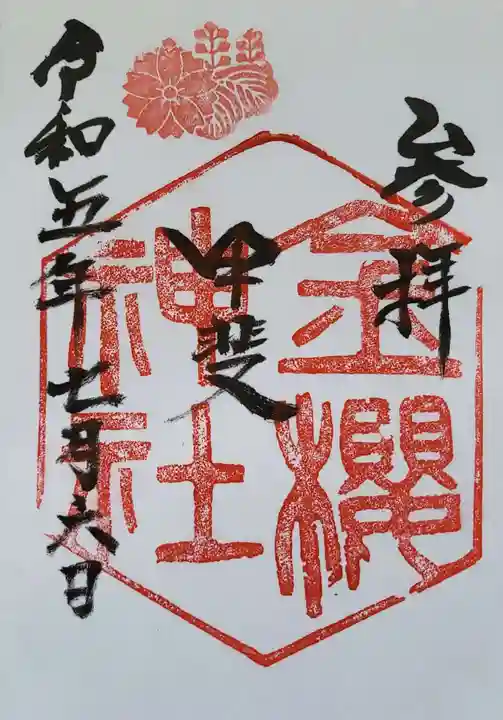 参拝
金櫻
甲斐
神社
令和五年七月六日